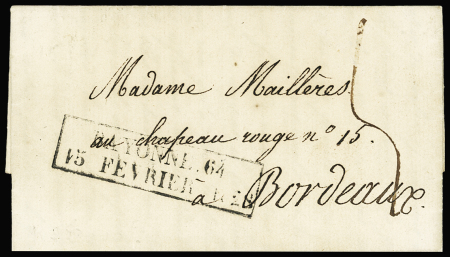 Madame Maillères
au chapeau rouge nº 15.
BAYONNE. 64
15 FEVRIER
a Bordeaux.
5